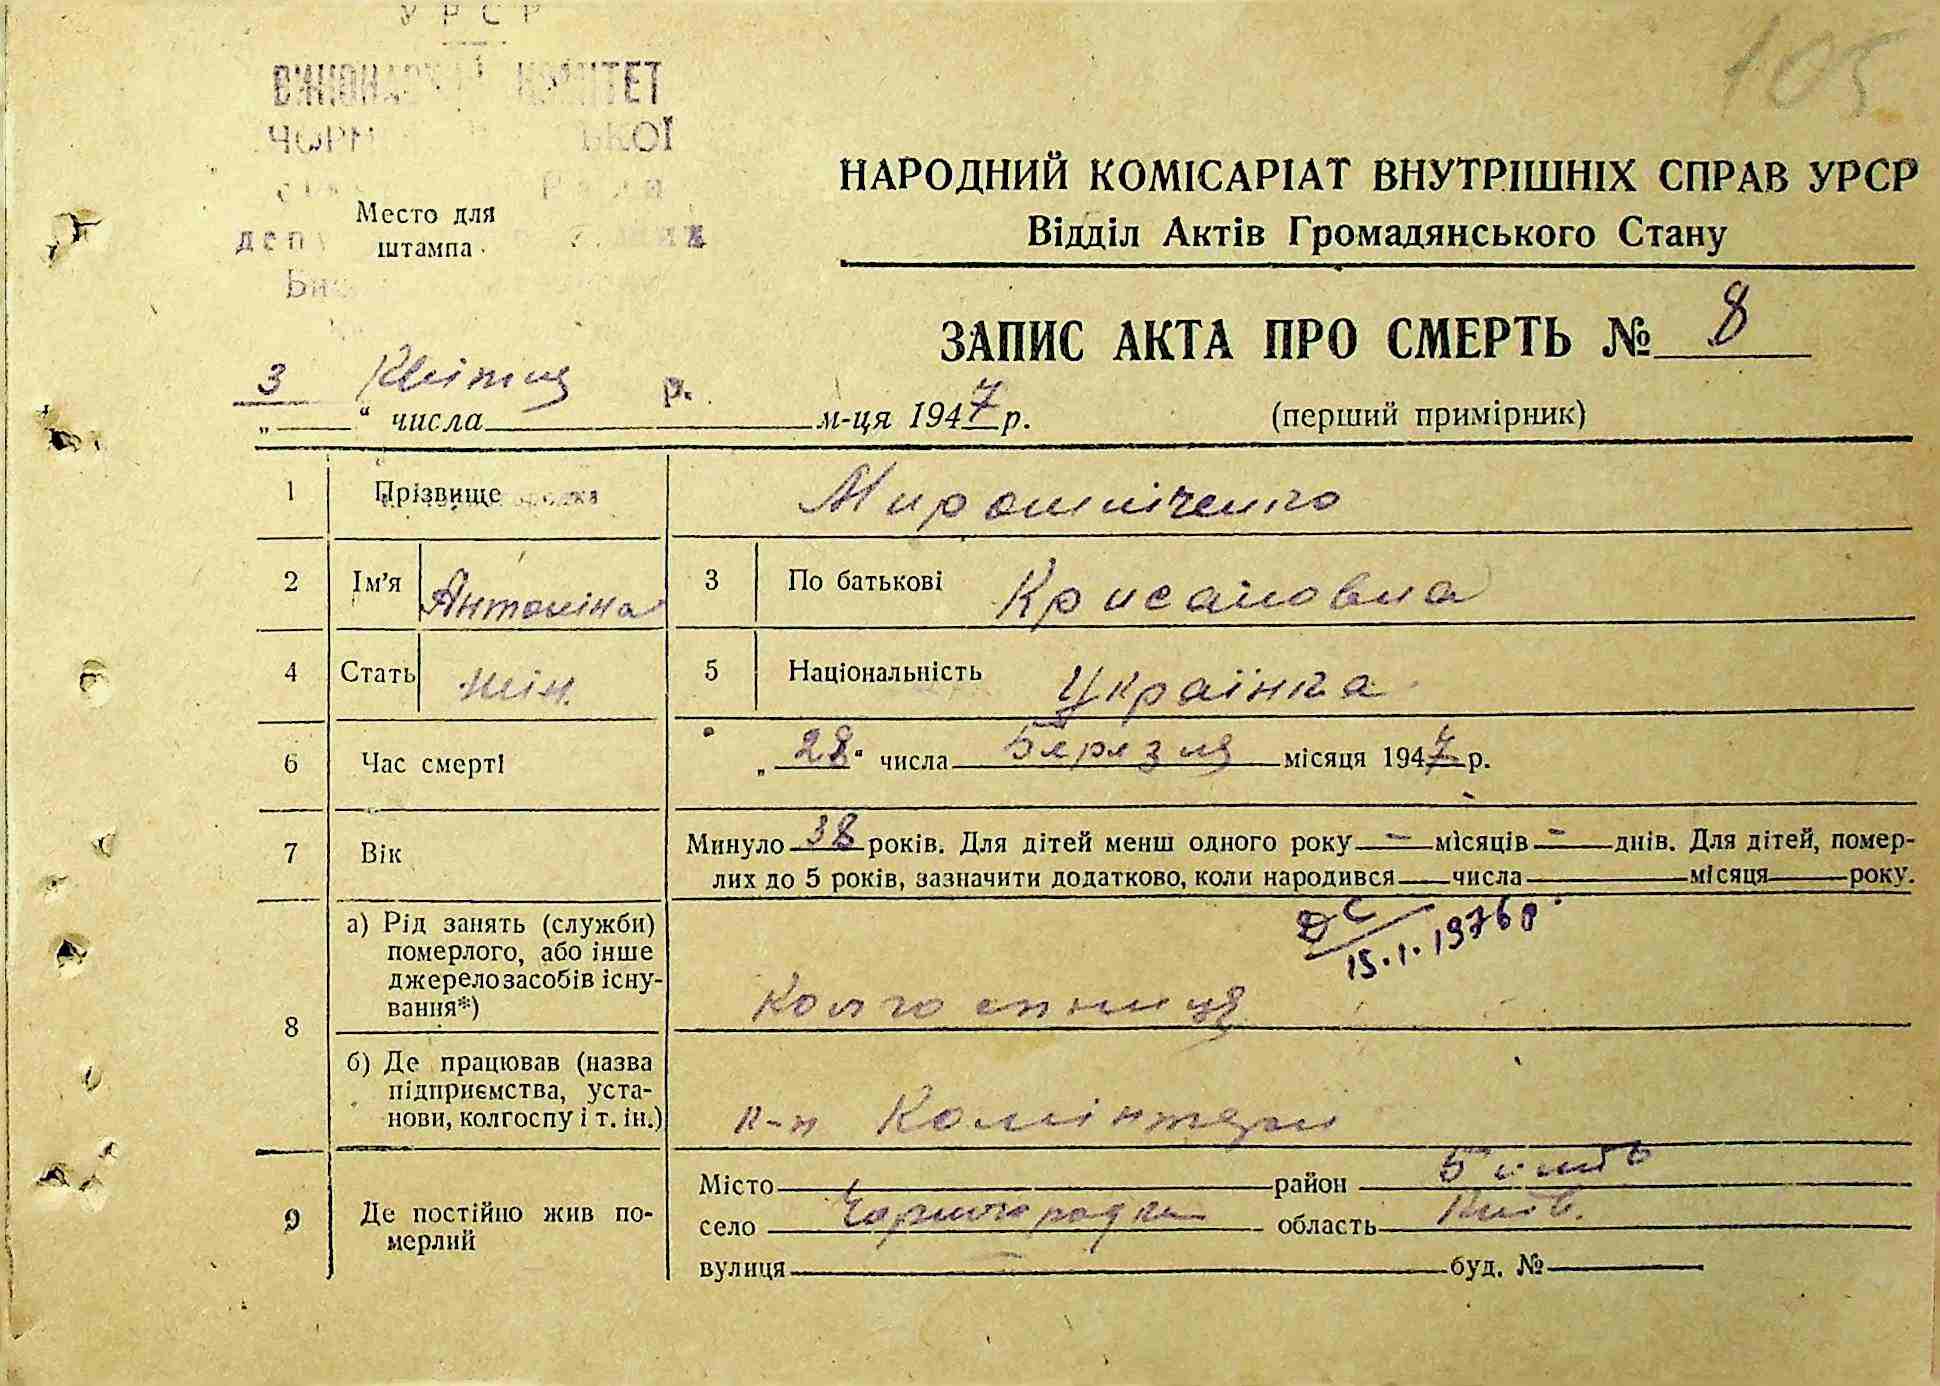 УРСР
105
КОМІТЕТ
НАРОДНИЙ КОМІСАРІАТ ВНУТРІШНІХ СПРАВ УРСР
Відділ Актів Громадянського Стану
Место для
штампа
ЗАПИС АКТА ПРО СМЕРТЬ № 8
3 Квітня р.
„ “ числа м-ця 1947 р.
(перший примірник)
1 Прізвище Мирошніченко
2 Ім’я Антоніна 3 По батькові Крисановна
4 Стать жін. 5 Національність Українка
6 Час смерті „28“ числа Березня місяця 1947 р.
7 Вік Минуло 38 років. Для дітей менш одного року – місяців – днів. Для дітей, помер-
лих до 5 років, зазначити додатково, коли народився числа місяця року.
ДС
15.1.1976р.
8 а) Рід занять (служби)
померлого, або інше
джерело засобів існу-
вання*)
Колгоспниця
б) Де працював (назва
підприємства, уста-
нови, колгоспу і т. ін.)
к-п Комінтерн
9 Де постійно жив по-
мерлий
Місто район Бишів
село Чорногородка область Київ.
вулиця буд. №